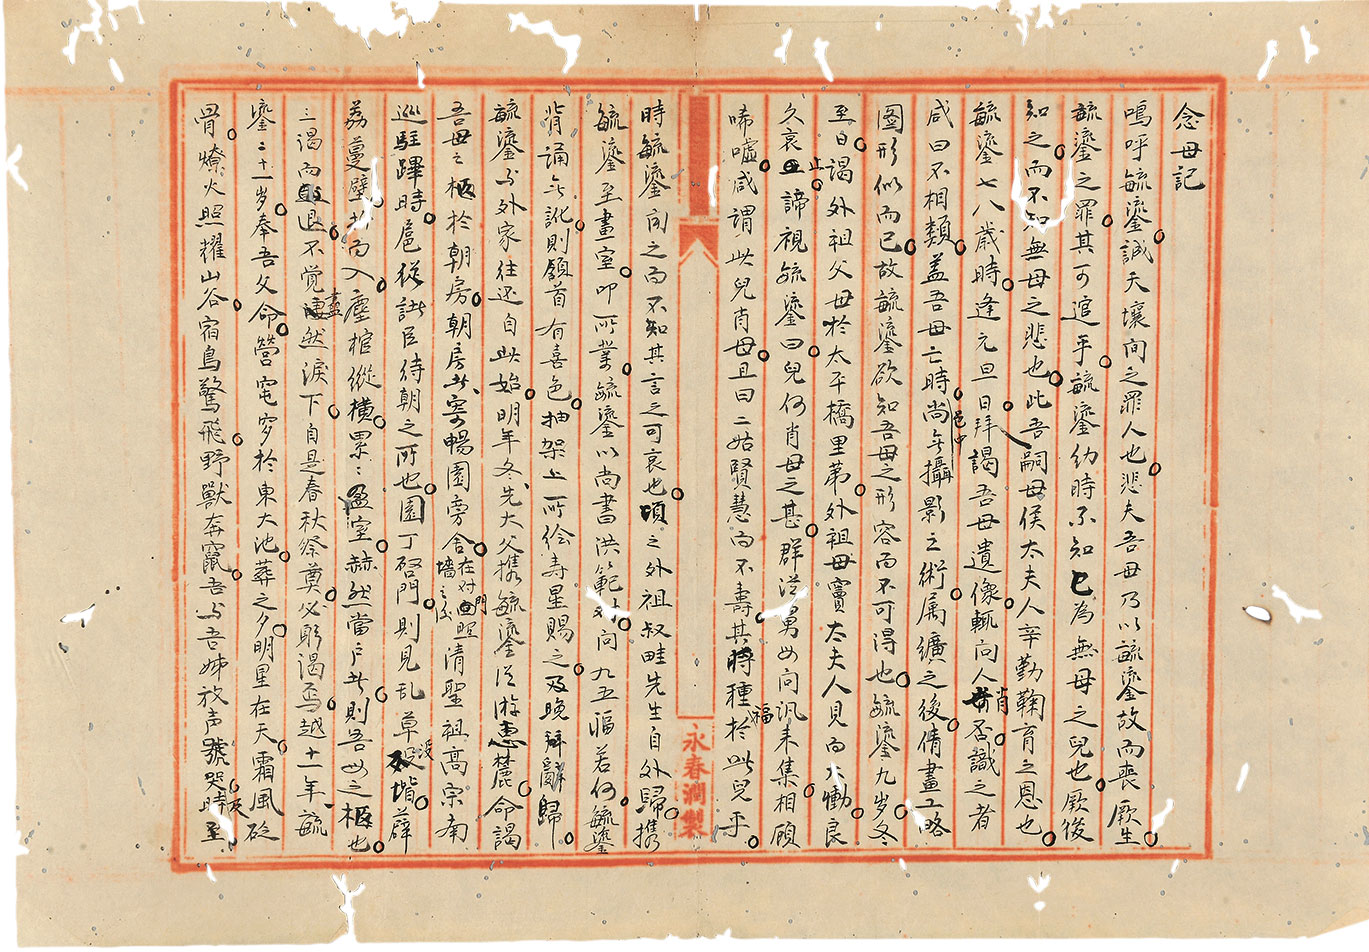 念母記
嗚呼毓鎏誠天壤間之罪人也悲夫吾母乃以毓鎏故而喪厥生
毓鎏之罪其可逭乎毓鎏幼時不知已為無母之兒也厥後
知之而不知無母之悲也此吾嗣母侯太夫人辛勤鞠育之恩也
毓鎏七八歲時逢元旦日拜謁吾母遺像輒向人肖否識之者
咸曰不相類蓋吾母亡時尚無攝影之術屬纊之後倩畫工略
邑中
圖形似而已故毓鎏欲知吾母之形容而不可得也毓鎏九歲冬
至日謁外祖父母於太平橋里第外祖母竇太夫人見而大慟良
久哀止諦視毓鎏曰兒何肖母之甚群從舅母向訊來集相顧
唏噓咸謂此兒肖母且曰二姑賢慧而不壽其將種福於此兒乎
時毓鎏聞之而不知其言之可哀也頃之外祖叔畦先生自外歸攜
毓鎏至畫室叩所業毓鎏以尚書洪範對問九五福若何毓鎏
背誦無訛則頷首有喜色抽架上所繪壽星賜之及晚拜辭歸
毓鎏與外家往還自此始明年冬先大父攜毓鎏從游惠麓命謁
吾母之柩於朝房朝房者寄暢園旁舍在對門照牆之後清聖祖高宗南
巡駐蹕時扈從諸臣待朝之所也園丁啓門則見亂草沒階薜
荔蔓壁於而入塵棺縱橫累累盈室赫然當戶者則吾母之柩也
三謁而退不覺盡然淚下自是春秋祭奠必躬謁焉越十一年毓
鎏二十一歲奉吾父命營窀穸於東大池葬之夕明星在天霜風砭
骨燎火照耀山谷宿鳥驚飛野獸奔竄吾與吾姊放声號哭時及
永春潤製